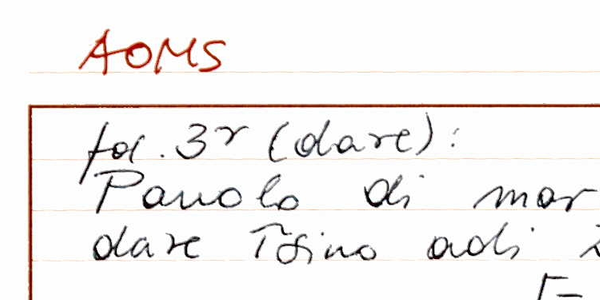 AOMS
fol. 3r (dare):
Pauolo di mar
dare
adi